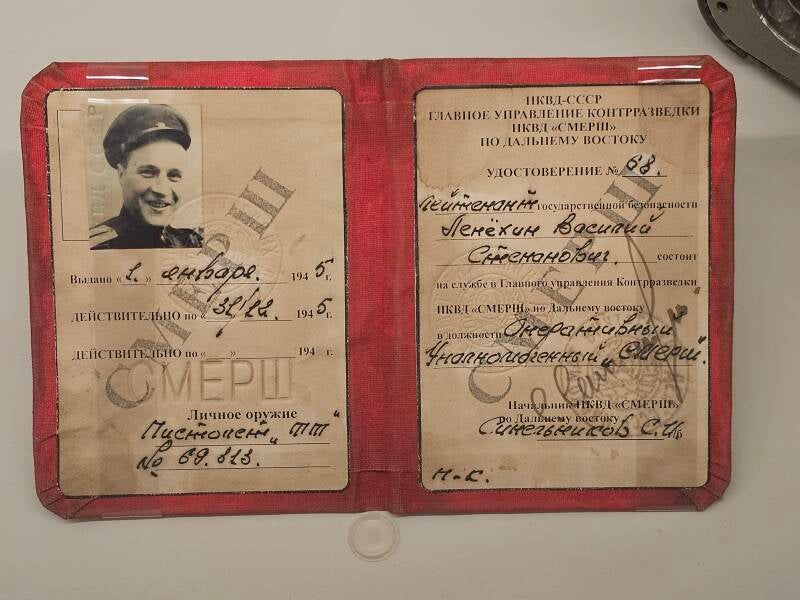 СМЕРШ
Выдано «1.» января. 1945 г.
ДЕЙСТВИТЕЛЬНО по «31/12. 1945 г.
ДЕЙСТВИТЕЛЬНО по « » 194 г.
СМЕРШ
Личное оружие
Пистолет „ТТ"
№ 69.813.
НКВД-СССР
ГЛАВНОЕ УПРАВЛЕНИЕ КОНТРРАЗВЕДКИ
НКВД «СМЕРШ»
ПО ДАЛЬНЕМУ ВОСТОКУ
УДОСТОВЕРЕНИЕ № 68.
СМЕРШ
Лейтенант государственной безопасности
Пенёхин Василий
Степанович. состоит
на службе в Главного управления Контрразведки
НКВД «СМЕРШ» по Дальнему востоку
в должности Оперативный
Уполномоченный „Смерш".
Начальник НКВД «СМЕРШ»
по Дальнему востоку
Синельников С.И.
Н-к.